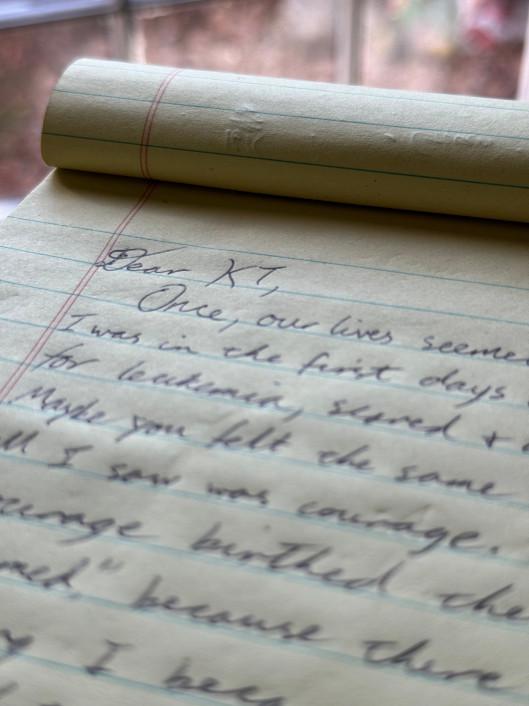 Dear KT,
Once, our lives seemed
I was in the first days
for leukemia, scared +
Maybe you felt the same
all I saw was courage.
courage birthed the
med," because there
I bec